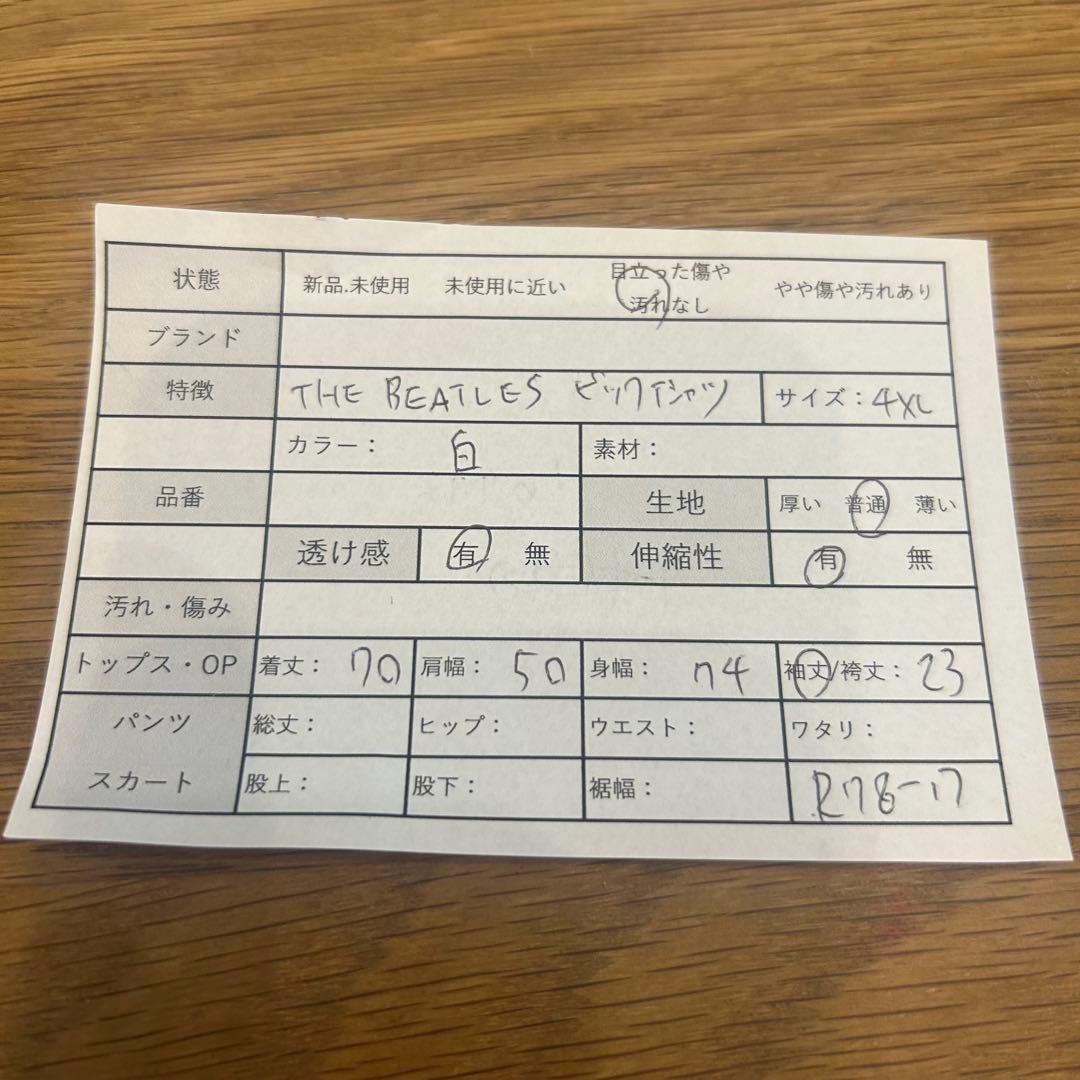 状態 新品.未使用 未使用に近い 目立った傷や汚れなし やや傷や汚れあり
ブランド
特徴 THE BEATLES ビックTシャツ サイズ：4XL
カラー：白 素材：
品番 生地 厚い 普通 薄い
透け感 有 無 伸縮性 有 無
汚れ・傷み
トップス・OP 着丈：70 肩幅：50 身幅：74 袖丈/袴丈：23
パンツ 総丈： ヒップ： ウエスト： ワタリ：
スカート 股上： 股下： 裾幅： R78-17